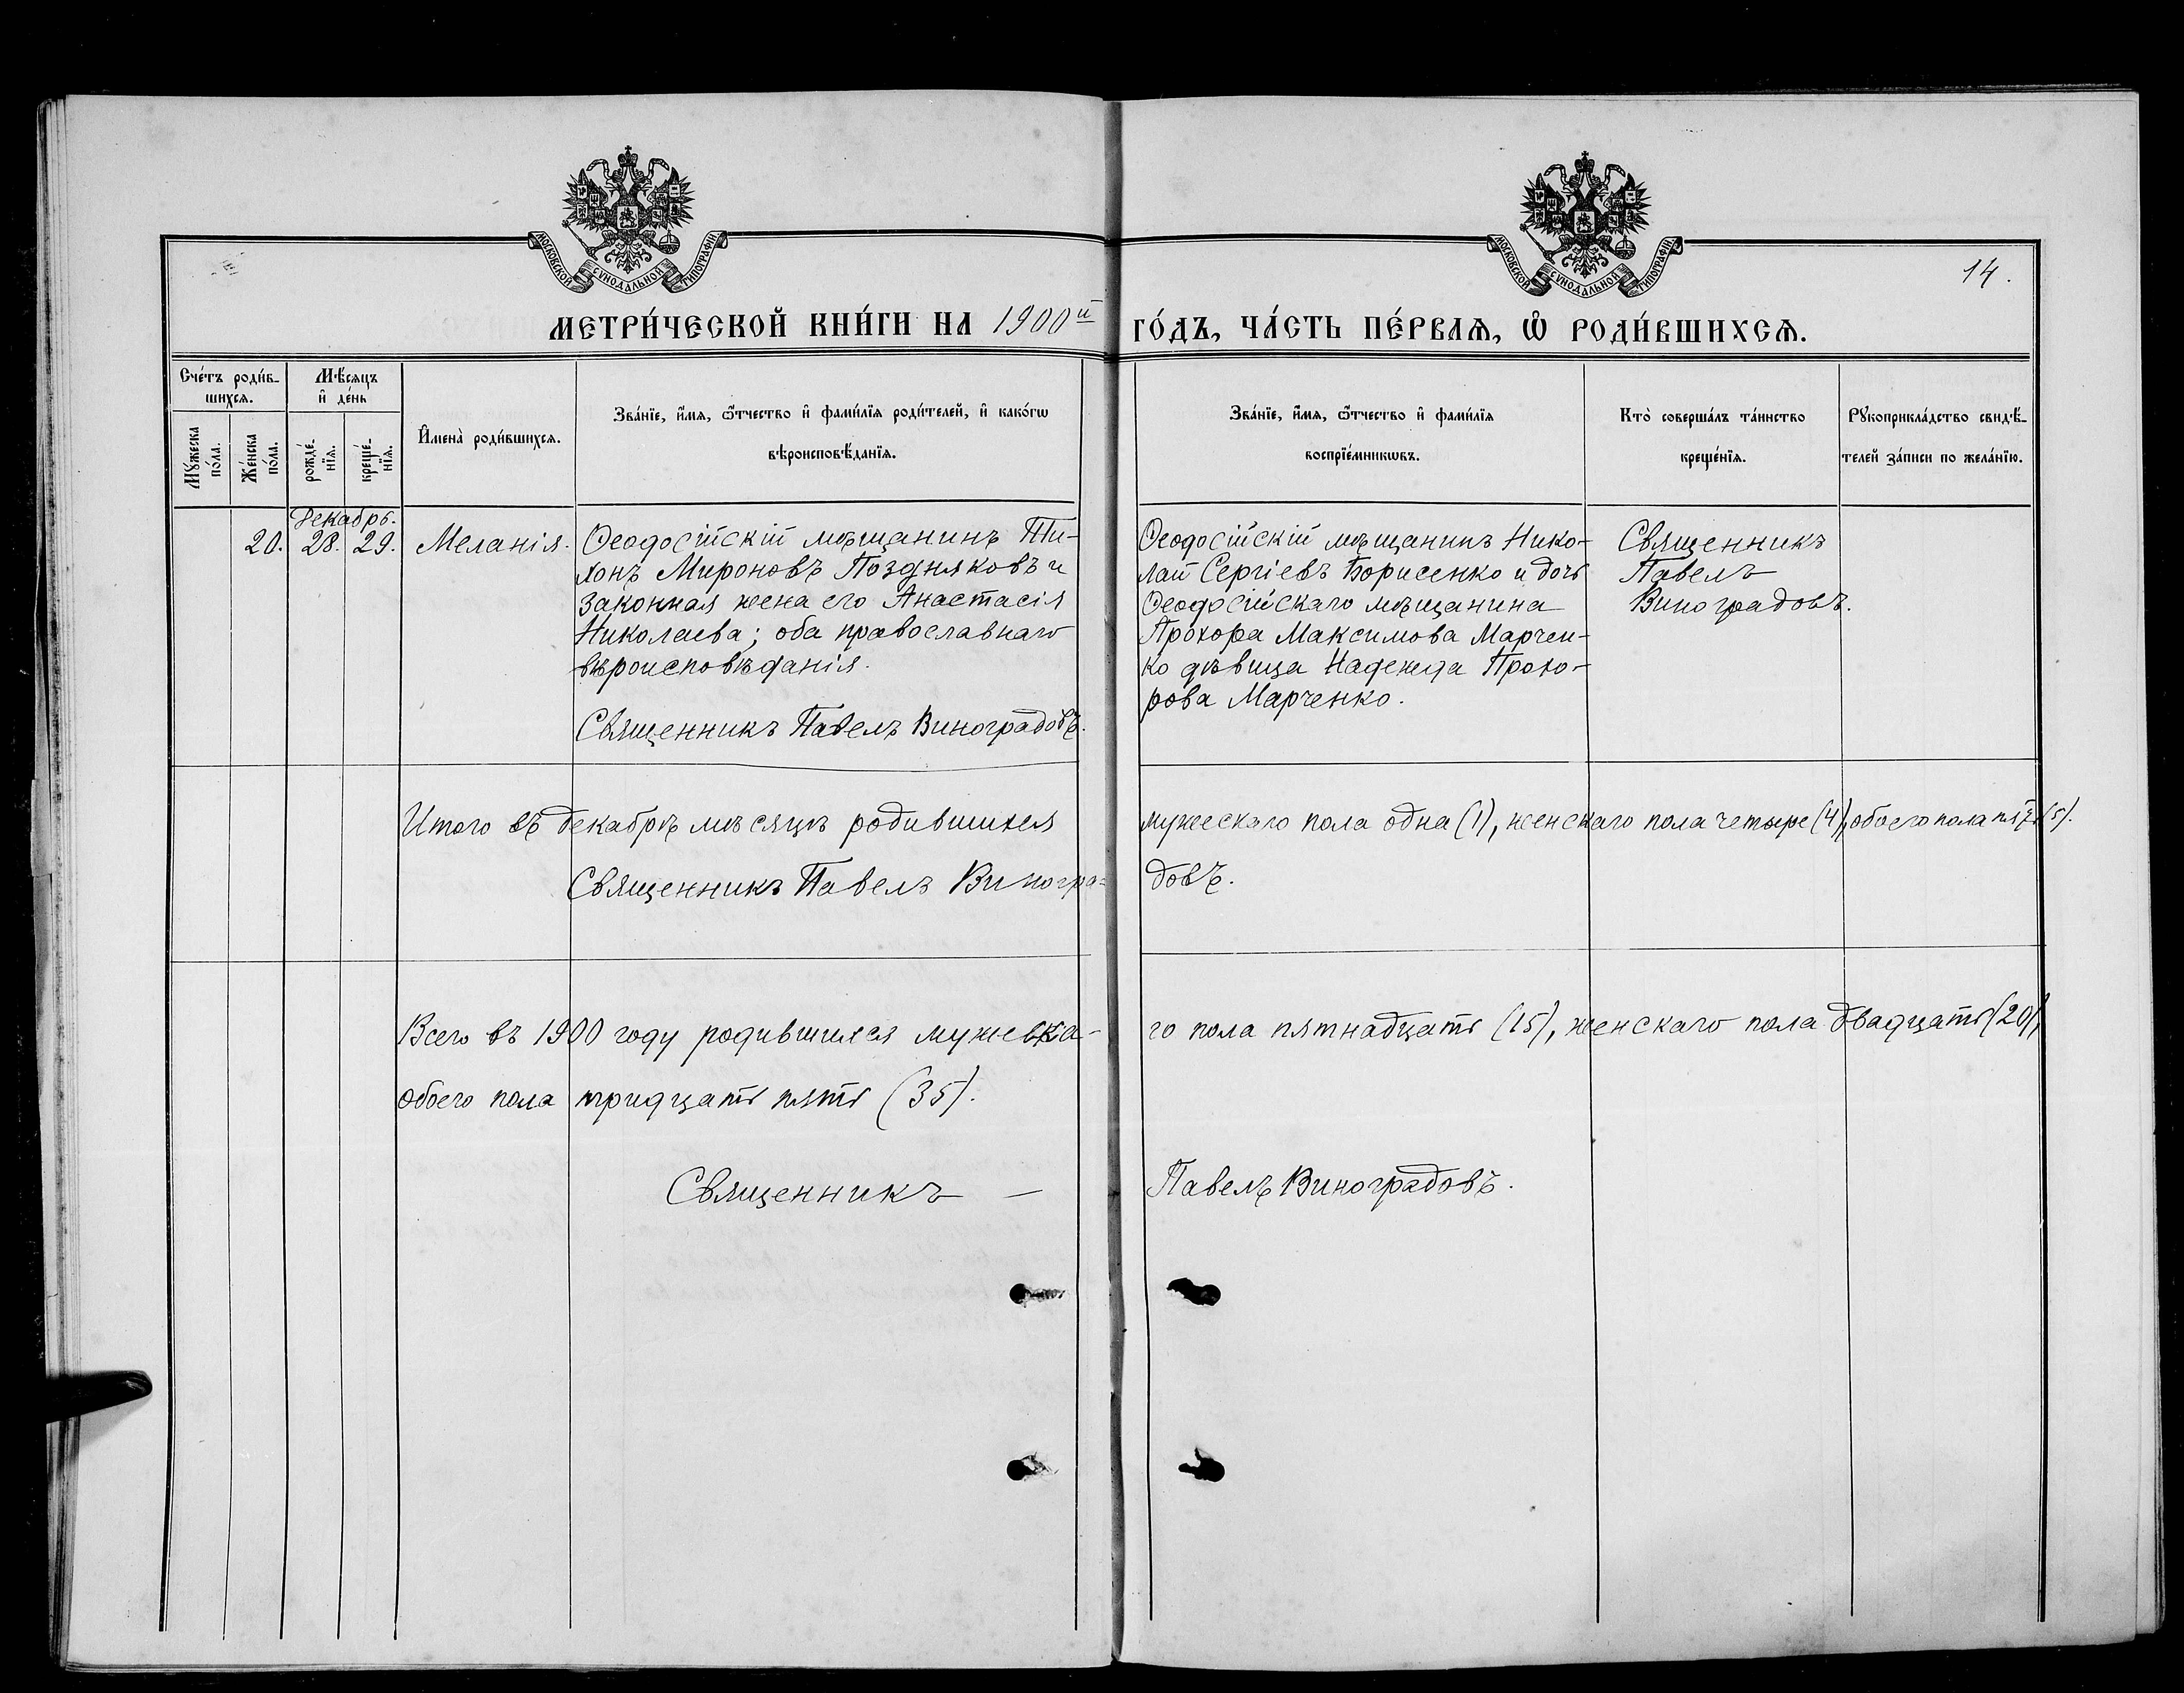 МОСКОВСКОЙ СѴНОДАЛЬНОЙ ТИПОГРАФІИ
МОСКОВСКОЙ СѴНОДАЛЬНОЙ ТИПОГРАФІИ
14.
МЕТРИ́ЧЕСКОЙ КНИ́ГИ НА 1900й ГО́ДЪ, ЧА́СТЬ ПЕ́РВАѦ, Ѡ҆ РОДИ́ВШИХСѦ.
Сче́тъ роди́в-
шихсѧ.
Мꙋ́жеска по́ла.
Же́нска по́ла.
Мѣ́сѧцъ
и҆ де́нь
рожде́-нїѧ.
креще́-нїѧ.
И҆мена̀ роди́вшихсѧ.
Зва́нїе, и҆́мѧ, ѻ҆́тчество и҆ фами́лїѧ роди́телей, и҆ како́гѡ
вѣроисповѣ́данїѧ.
Зва́нїе, и҆́мѧ, ѻ҆́тчество и҆ фами́лїѧ
воспрїе́мникѡвъ.
Кто̀ соверша́лъ та́инство
креще́нїѧ.
Рꙋкоприкла́дство свидѣ́-
телей за́писи по жела́нїю.
Декабрь.
20. 28. 29. Меланія.
Ѳеодосійскій мѣщанинъ Ти-
хонъ Мироновъ Поздняковъ и
законная жена его Анастасія
Николаева; оба православнаго
вѣроисповѣданія.
Священникъ Павелъ Виноградовъ.
Ѳеодосійскій мѣщанинъ Нико-
лай Сергіевъ Борисенко и дочь
Ѳеодосійскаго мѣщанина
Прохора Максимова Марчен-
ко дѣвица Надежда Прохо-
рова Марченко.
Священникъ
Павелъ
Виноградовъ.
Итого въ декабрѣ мѣсяцѣ родившихся мужескаго пола одна (1), женскаго пола четыре (4), обоего пола пять (5).
Священникъ Павелъ Виногра-
довъ.
Всего въ 1900 году родившихся мужеска-
го пола пятнадцать (15), женскаго пола двадцать (20),
обоего пола тридцать пять (35).
Священникъ — Павелъ Виноградовъ.